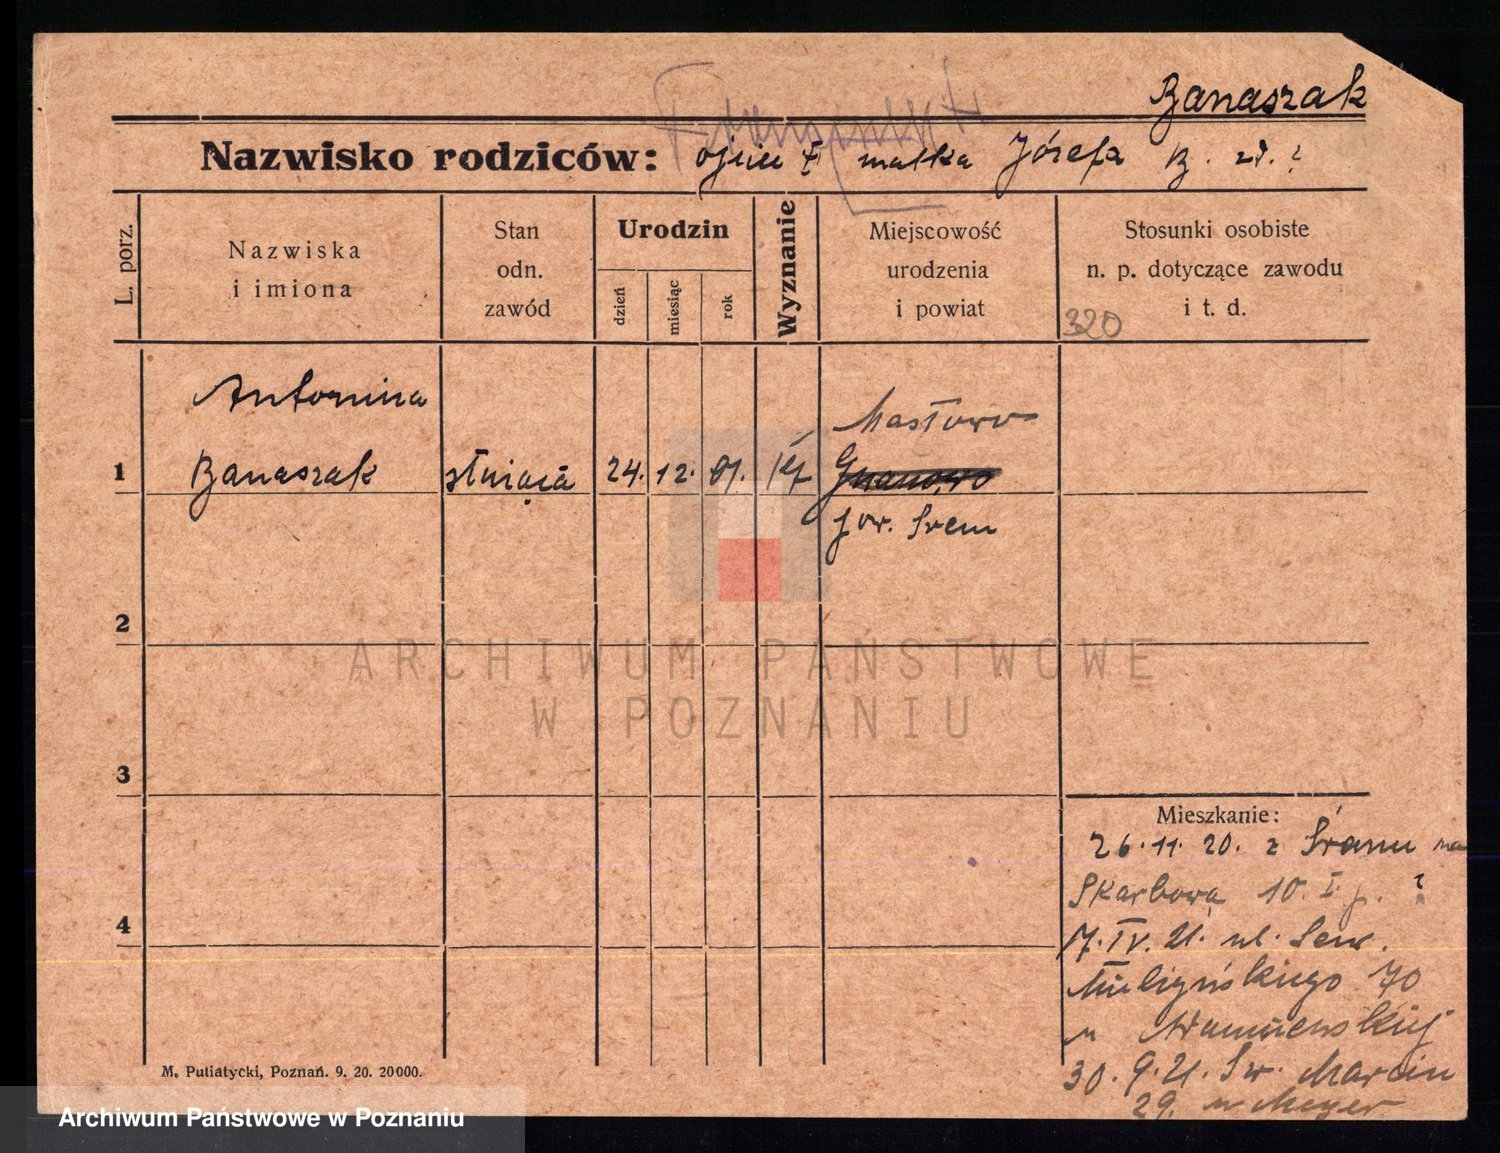 Banaszak
Nazwisko rodziców: ojciec † matka Józefa
L. porz.
Nazwiska
i imiona
Stan
odn.
zawód
Urodzin
dzień
miesiąc
rok
Wyznanie
Miejscowość
urodzenia
i powiat
Stosunki osobiste
n. p. dotyczące zawodu
i t. d.
320
Antonina
Masłowo
1 Banaszak służąca 24. 12. 01. kf
pow. Śrem
2
ARCHIWUM PAŃSTWOWE
W POZNANIU
3
Mieszkanie:
26.11.20. z Śremu na
Skarbową 10. I p. ?
4
7. IV. 21. ul. Sew.
Mielżyńskiego 70
u
30.9.21. Św. Marcin
29. u Meyer
M. Putiatycki, Poznań. 9. 20. 20000.
Archiwum Państwowe w Poznaniu